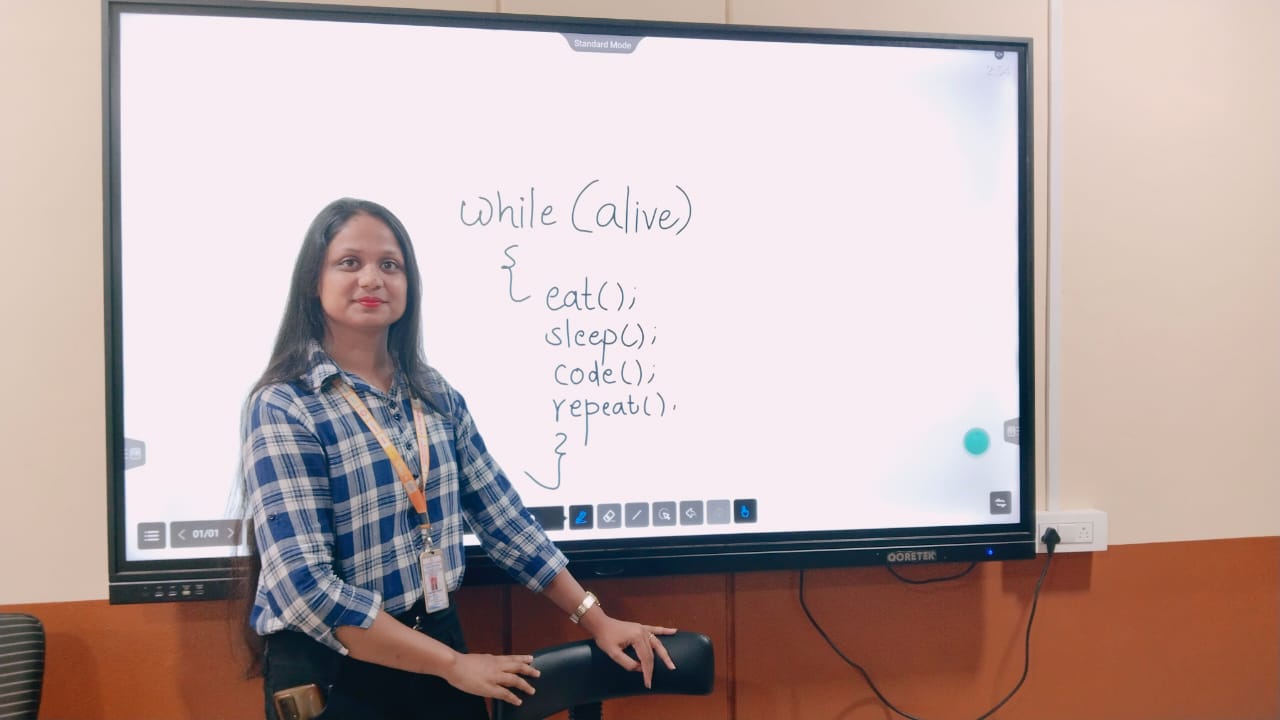 Standard Mode
2:54
while (alive)
{
eat();
sleep();
code();
repeat().
}
01/01
QORETEK